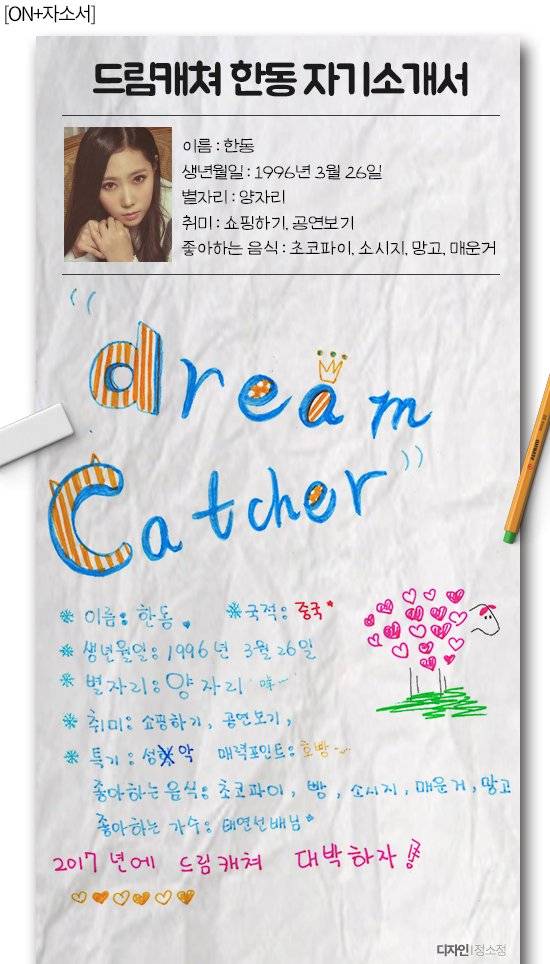 [ON+자소서]
드림캐쳐 한동 자기소개서
이름 : 한동
생년월일 : 1996년 3월 26일
별자리 : 양자리
취미 : 쇼핑하기, 공연보기
좋아하는 음식 : 초코파이, 소시지, 망고, 매운거
“dream
Catcher”
* 이름: 한동 * 국적: 중국
* 생년월일: 1996년 3월 26일
* 별자리: 양자리
* 취미: 쇼핑하기, 공연보기,
* 특기: 성악 매력포인트: 호빵
좋아하는 음식: 초코파이, 빵, 소시지, 매운거, 망고
좋아하는 가수: 태연선배님
2017년에 드림캐쳐 대박하자
디자인|정소정